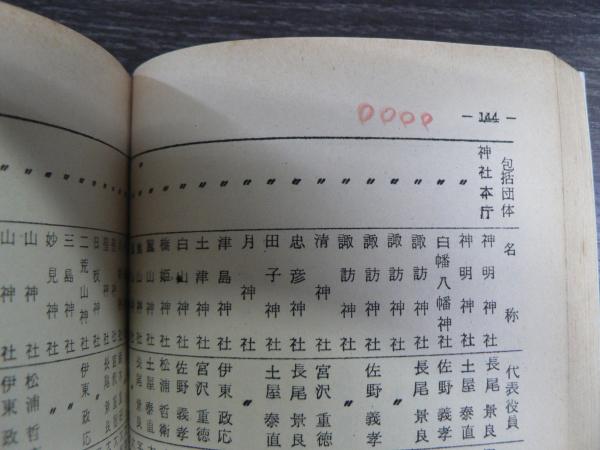 0000
- 144 -
包括団体 名称 代表役員
神社本庁 神明神社 長尾景良
〃 神明神社 土屋泰直
〃 白幡八幡神社 佐野義孝
〃 諏訪神社 長尾景良
〃 諏訪神社 〃
〃 諏訪神社 佐野義孝
〃 諏訪神社 〃
〃 清神社 宮沢重徳
〃 忠彦神社 長尾景良
〃 田子神社 土屋泰直
〃 月神社 〃
〃 津島神社 伊東政応
〃 土津神社 宮沢重徳
〃 白山神社 佐野義孝
〃 橋姫神社 松浦哲衛
〃 山神社 土屋泰直
〃 山神社 長尾景良
〃 日枝神社
〃 二荒山神社 伊東政応
〃 三島神社 〃
〃 妙見神社 〃
〃 山神社 松浦哲
〃 山神社 伊東政